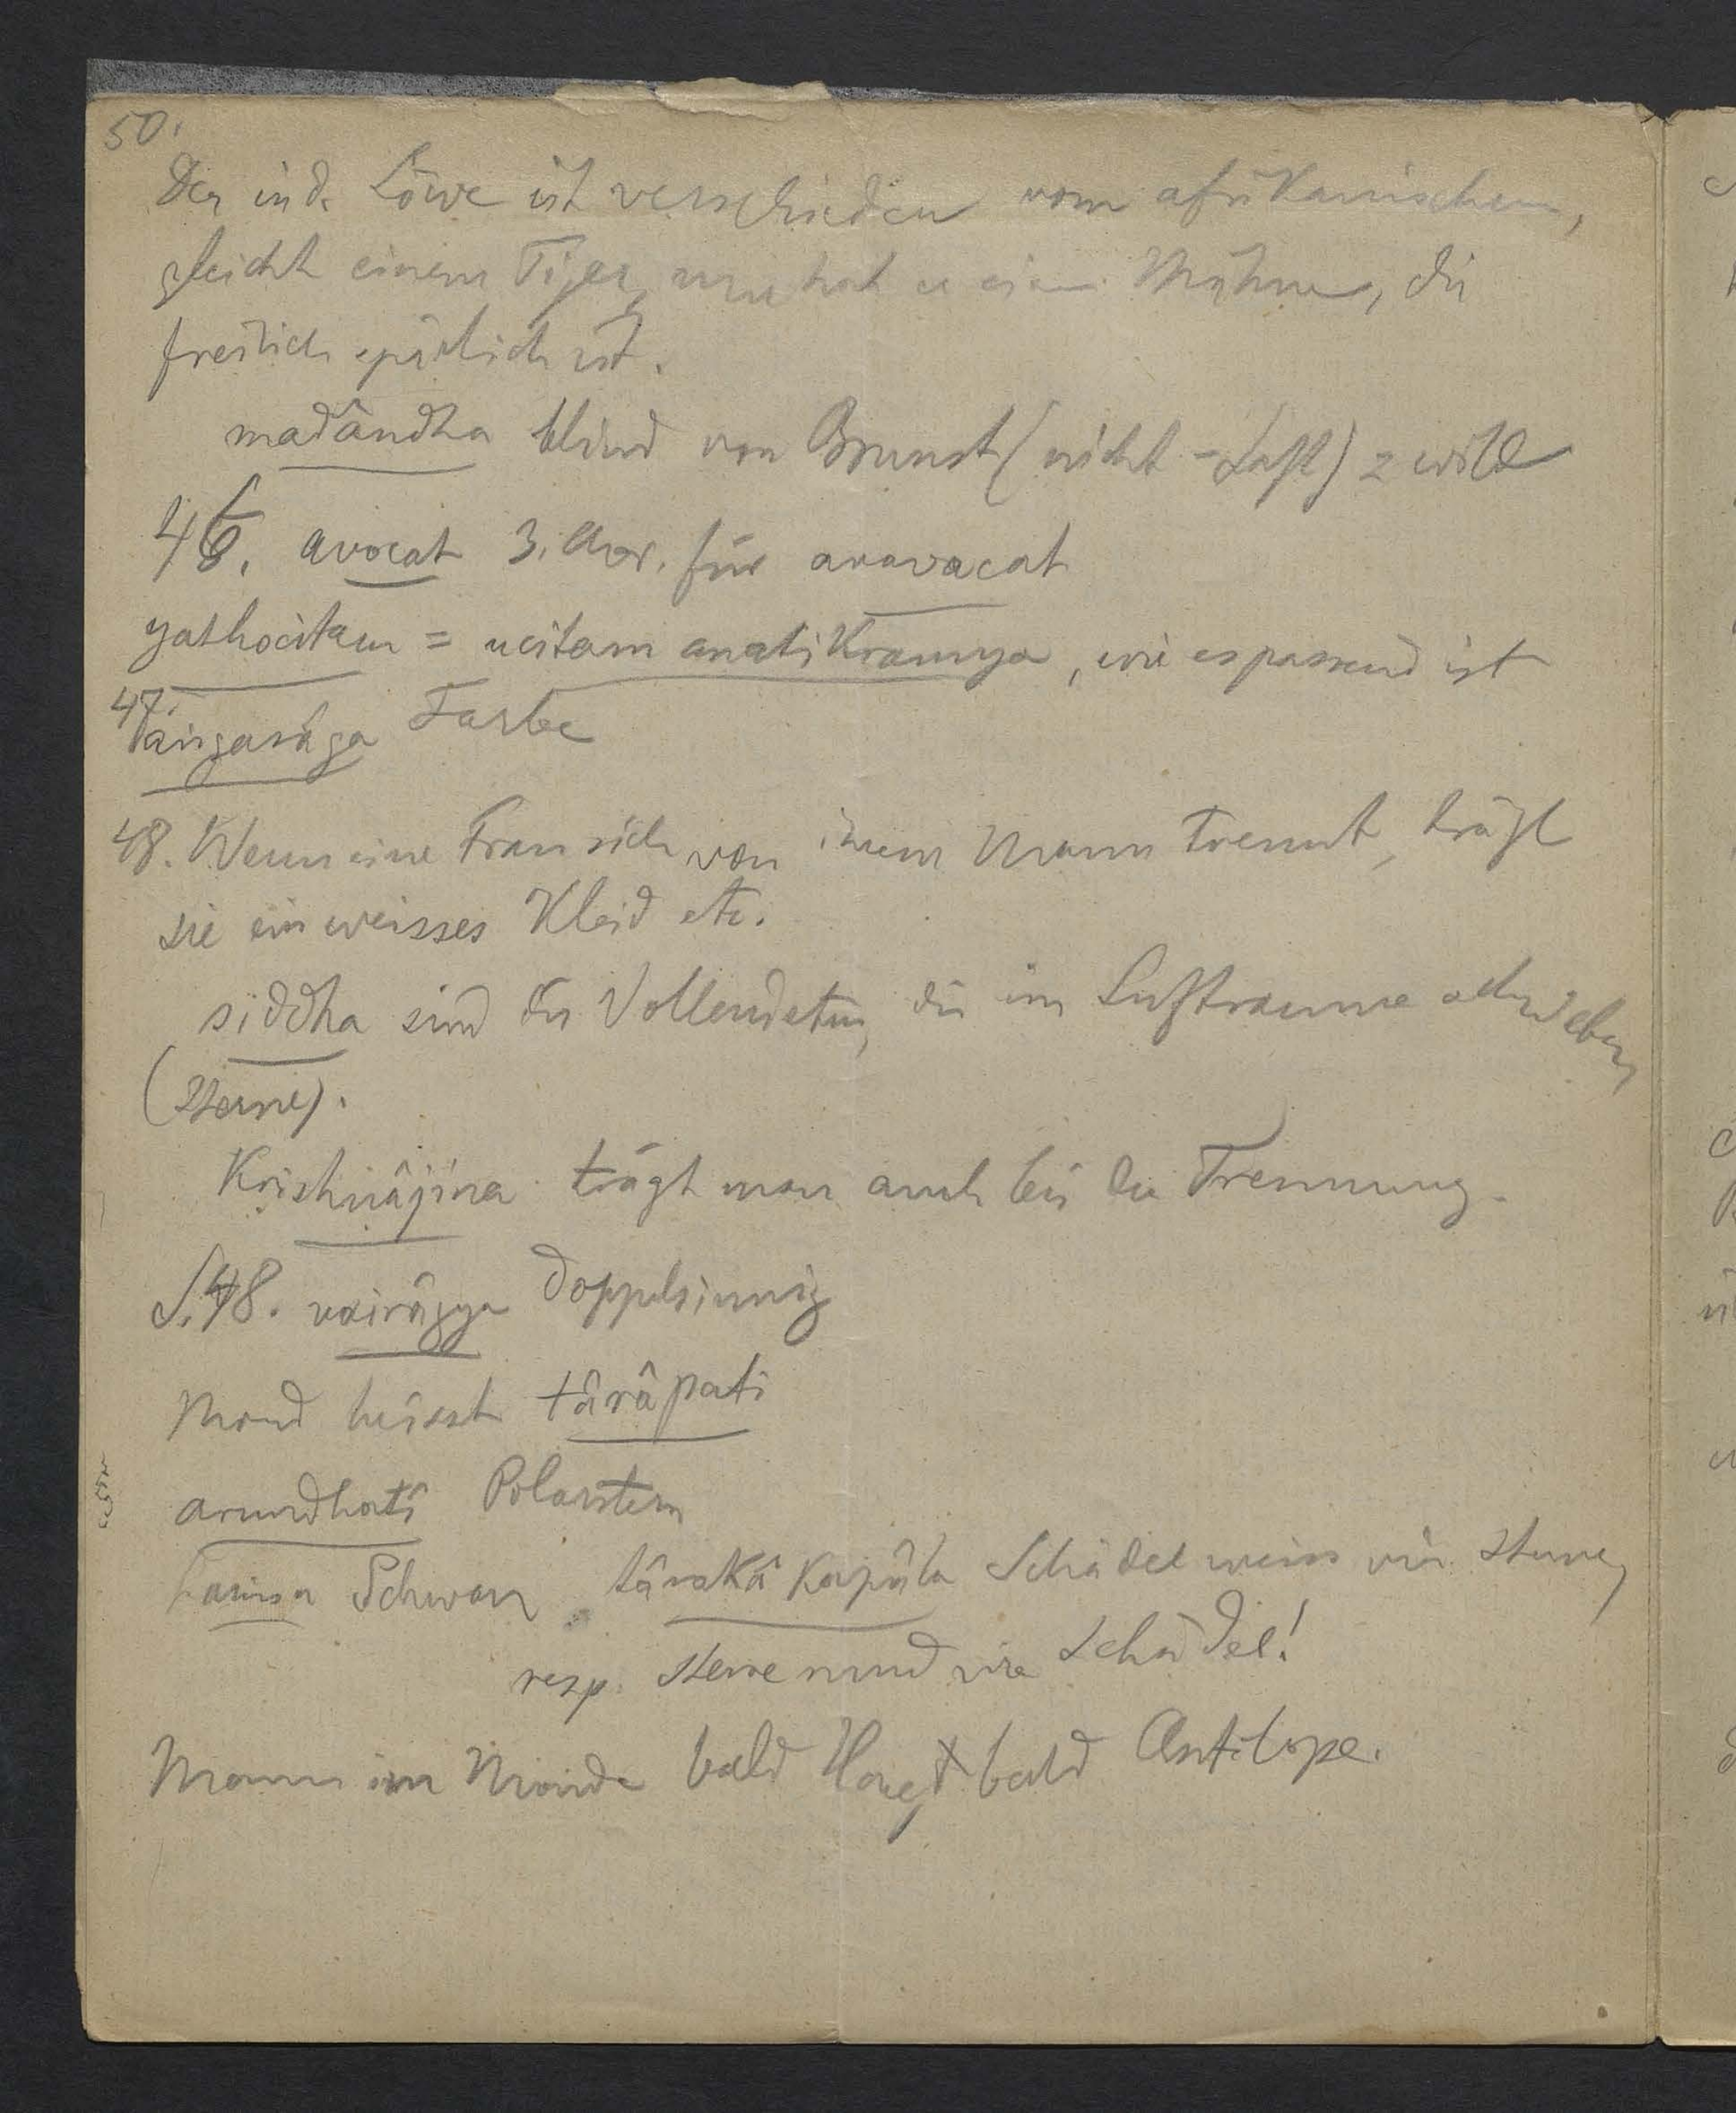 50.
Der ind. Löwe ist verschieden vom afrikanischen,
gleicht einem Tiger, nur hat er eine Mähne, die
freilich spärlich ist.
madândha blind von Brunst (nicht -Saft) = wild
46. avocat 3. Aor. für avavacat
yathocitam = ucitam anatikramya, wie es passend ist
47.
angarâga Farbe
48. Wenn eine Frau sich von ihrem Mann trennt, trägt
sie ein weisses Kleid etc.
siddha sind die Vollendeten, die im Luftraume schweben,
(Sterne).
Krishnâjina trägt man auch bei der Trennung.
S. 48. vairâgya doppelsinnig
Mond heisst târâpati
arundhatî Polarstern
hamsa Schwan târakâ kapâla Schädel weiss wie Sterne,
resp. Sterne rund wie Schädel!
Mann im Monde bald Hase, bald Antilope.